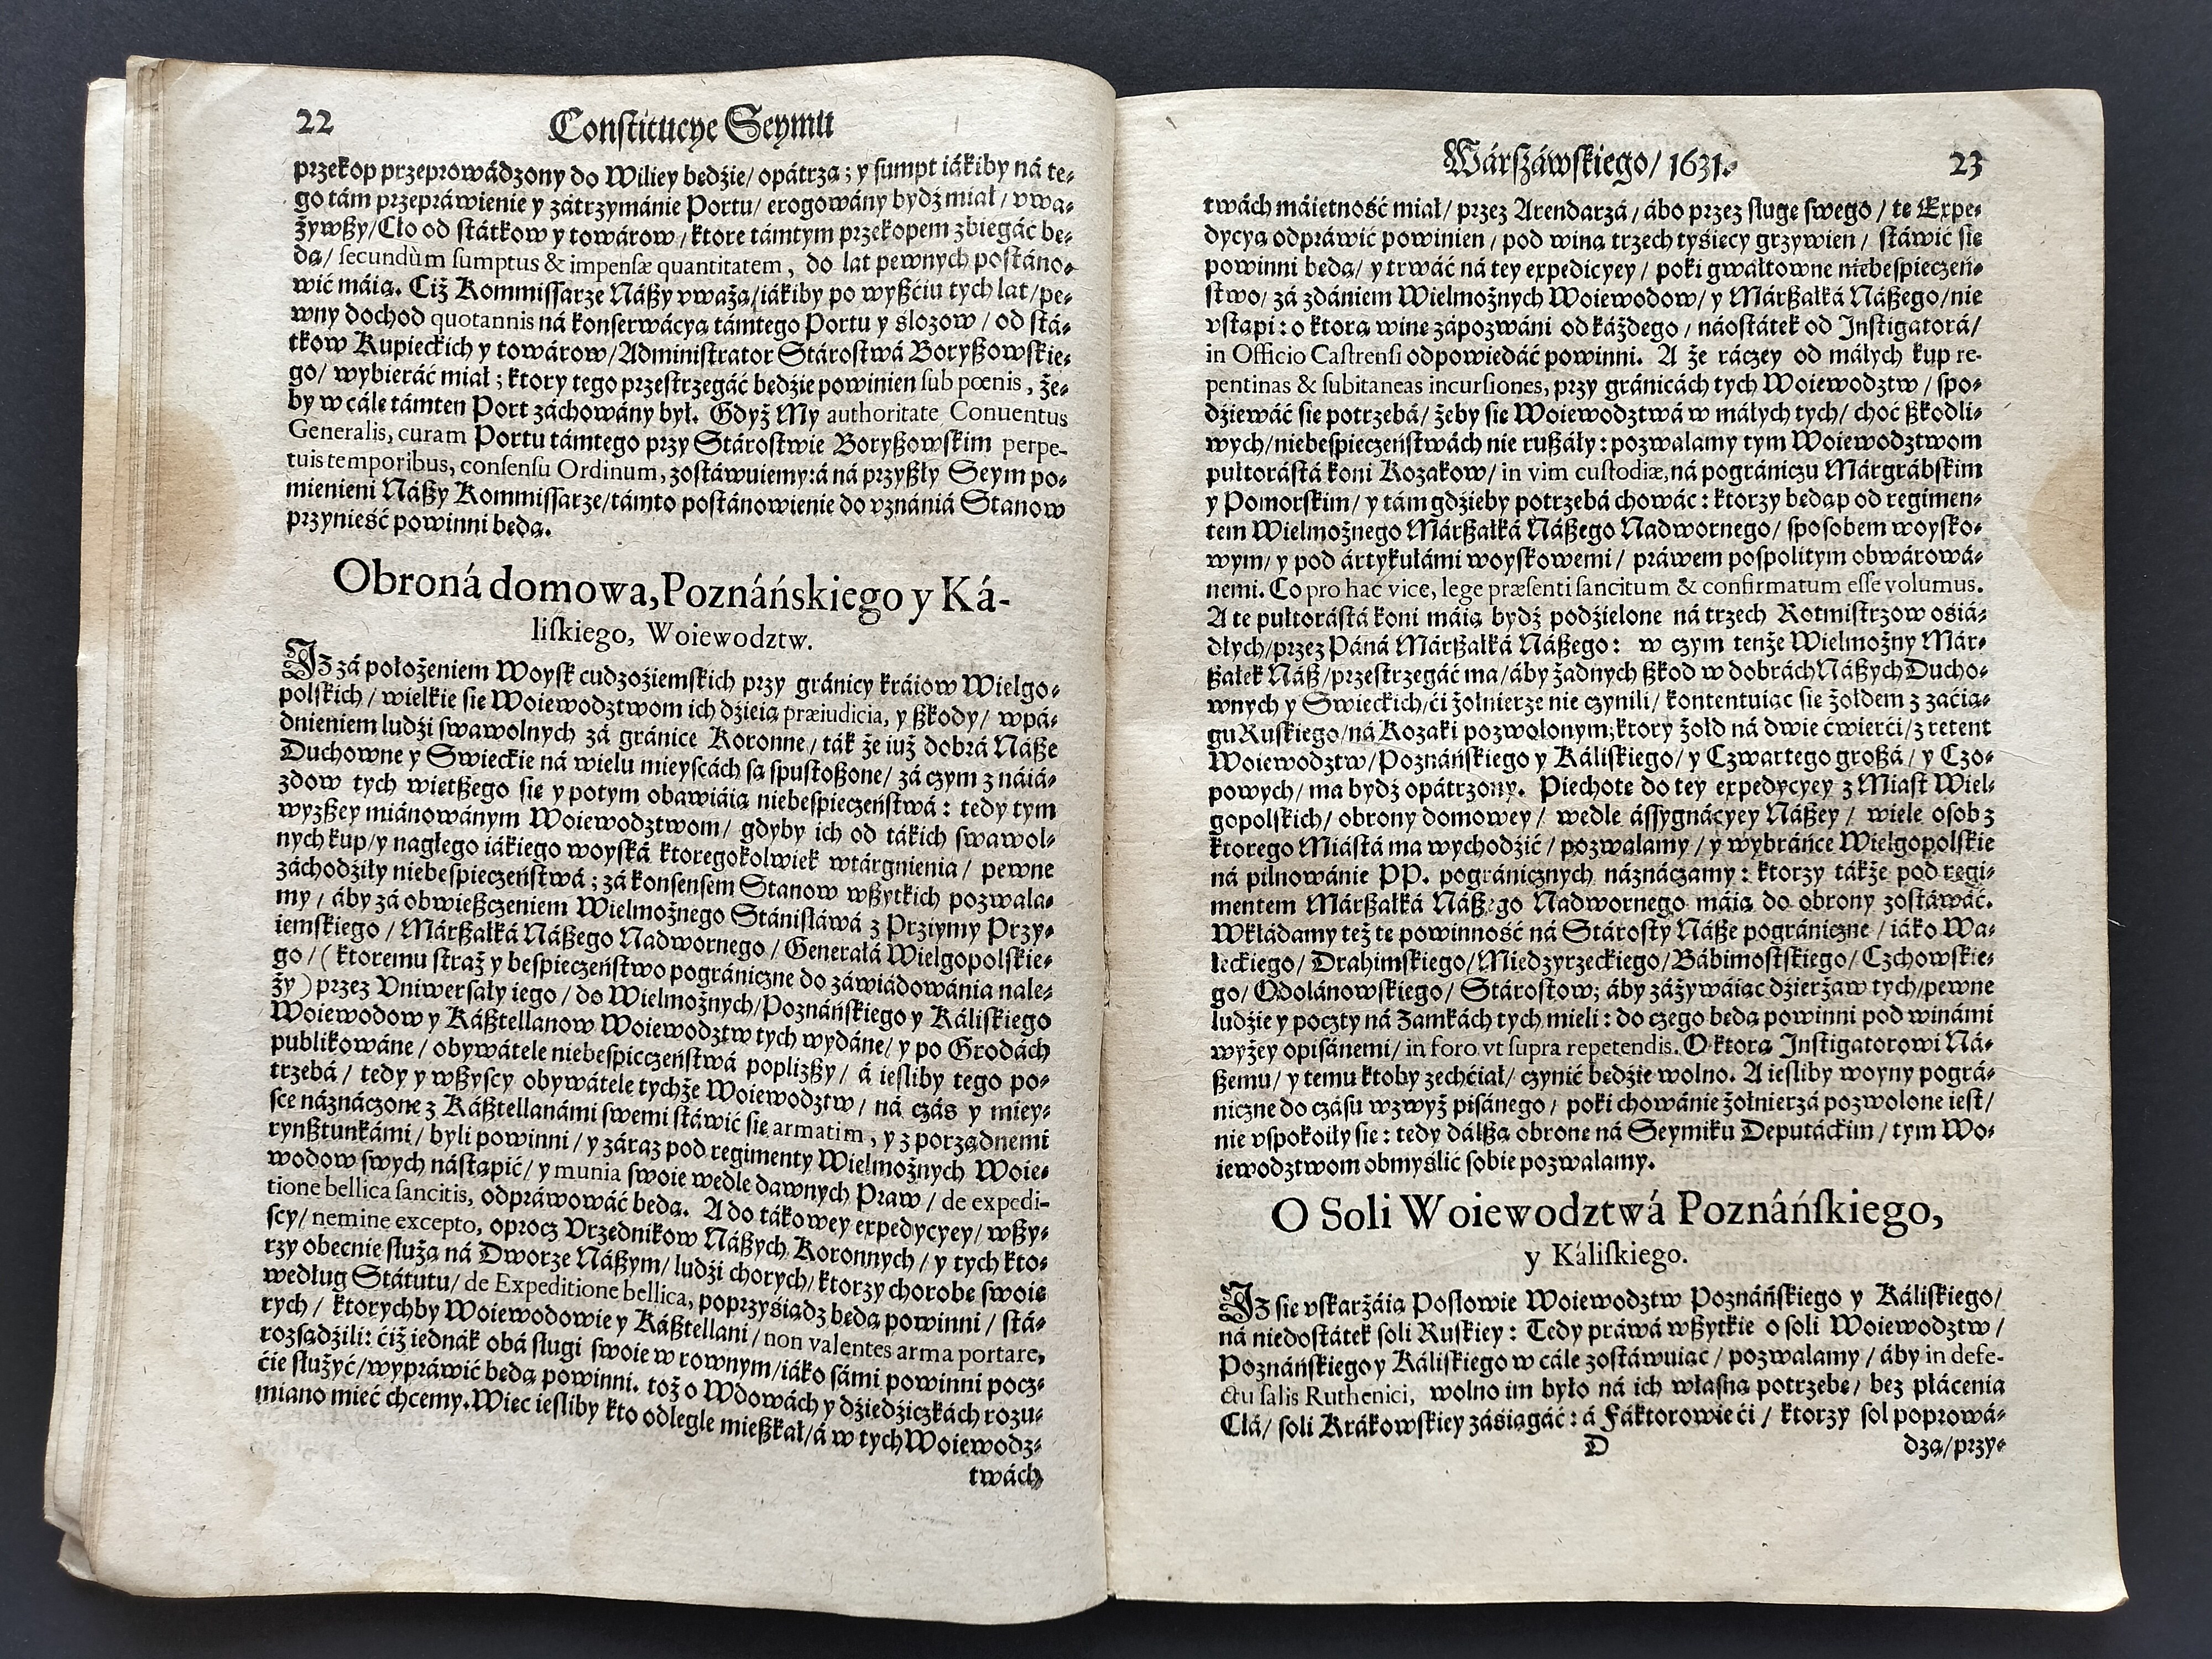 22 Constitucye Seymu
przekop przeprowádzony do Wiliey będźie/ opátrzą; y sumpt iákiby ná te-
go tám przepráwienie y zátrzymánie Portu/ erogowány bydź miał/ vwa-
żywszy/ Cło od státkow y towárow/ ktore támtym przekopem zbiegáć bę-
dą/ secundùm sumptus & impensæ quantitatem, do lat pewnych postáno-
wić máią. Ciż Kommissarze Nászy vważą/ iákiby po wyszćiu tych lat/ pe-
wny dochod quotannis ná konserwácyą támtego Portu y slozow/ od stá-
tkow Kupieckich y towárow/ Administrator Stárostwá Boryszowskie-
go/ wybieráć miał; ktory tego przestrzegáć będźie powinien sub pœnis, że-
by w cále támten Port záchowány był. Gdyż My authoritate Conuentus
Generalis, curam Portu támtego przy Stárostwie Boryszowskim perpe-
tuis temporibus, consensu Ordinum, zostáwuiemy: á ná przyszły Seym po-
mienieni Nászy Kommissarze/ támto postánowienie do vznániá Stanow
przynieść powinni będą.
Obroná domowa, Poznáńskiego y Ká-
liskiego, Woiewodztw.
Iz zá położeniem Woysk cudzoźiemskich przy gránicy kráiow Wielgo-
polskich/ wielkie się Woiewodztwom ich dźieią præiudicia, y szkody/ wpá-
dnieniem ludźi swawolnych zá gránice Koronne/ ták że iuż dobrá Násze
Duchowne y Swieckie ná wielu mieyscách są spustoszone/ zá czym z náiá-
zdow tych więtszego się y potym obawiáią niebespieczeństwá: tedy tym
wyzszey miánowánym Woiewodztwom/ gdyby ich od tákich swawol-
nych kup/ y nagłego iákiego woyská ktoregokolwiek wtárgnienia/ pewne
záchodźiły niebespieczeństwá; zá konsensem Stanow wszytkich pozwala-
my/ áby zá obwieszczeniem Wielmożnego Stánisłáwá z Przyimy Przy-
iemskiego/ Márszałká Nászego Nadwornego/ Generałá Wielgopolskie-
go/ (ktoremu straż y bespieczeństwo pográniczne do záwiádowánia nale-
ży) przez Vniwersały iego/ do Wielmożnych/ Poznáńskiego y Káliskiego
Woiewodow y Kásztellanow Woiewodztw tych wydáne/ y po Grodách
publikowáne/ obywátele niebespieczeństwá poplizszy/ á iesliby tego po-
trzebá/ tedy y wszyscy obywátele tychże Woiewodztw/ ná czás y miey-
sce náznáczone z Kásztellanámi swemi stáwić się armatim, y z porządnemi
rynsztunkámi/ byli powinni/ y záraz pod regimenty Wielmożnych Woie-
wodow swych nástąpić/ y munia swoie wedle dawnych Praw/ de expedi-
tione bellica sancitis, odpráwowáć będą. A do tákowey expedycyey/ wszy-
scy/ nemine excepto, oprocz Vrzędnikow Nászych Koronnych/ y tych kto-
rzy obecnie służą ná Dworze Nászym/ ludźi chorych/ ktorzy chorobę swoię
według Státutu/ de Expeditione bellica, poprzyśiądz będą powinni/ stá-
rych/ ktorychby Woiewodowie y Kásztellani/ non valentes arma portare,
rozsądźili: ćiż iednák obá sługi swoie w rownym/ iáko sámi powinni pocz-
ćie służyć/ wypráwić będą powinni. toż o Wdowách y dźiedźiczkách rozu-
miano mieć chcemy. Więc iesliby kto odlegle mieszkał/ á w tych Woiewodz-
twách
Wárszáwskiego/ 1631. 23
twách máiętność miał/ przez Arendarzá/ ábo przez sługę swego/ tę Expe-
dycyą odpráwić powinien/ pod winą trzech tyśięcy grzywien/ stáwić się
powinni będą/ y trwáć ná tey expedicyey/ poki gwałtowne niebespieczeń-
stwo/ zá zdániem Wielmożnych Woiewodow/ y Márszałká Nászego/ nie
vstąpi: o ktorą winę zápozwáni od káżdego/ náostátek od Instigatorá/
in Officio Castrensi odpowiedáć powinni. A że ráczey od máłych kup re-
pentinas & subitaneas incursiones, przy gránicách tych Woiewodztw/ spo-
dźiewáć się potrzebá/ żeby się Woiewodztwá w máłych tych/ choć szkodli-
wych/ niebespieczeństwách nie ruszáły: pozwalamy tym Woiewodztwom
pułtorástá koni Kozakow/ in vim custodiæ, ná pográniczu Márgrábskim
y Pomorskim/ y tám gdźieby potrzebá chowáć: ktorzy będą pod regimen-
tem Wielmożnego Márszałká Nászego Nadwornego/ sposobem woysko-
wym/ y pod ártykułámi woyskowemi/ práwem pospolitym obwárowá-
nemi. Co pro hac vice, lege præsenti sancitum & confirmatum esse volumus.
A te pułtorástá koni máią bydź podźielone ná trzech Rotmistrzow ośiá-
dłych/ przez Páná Márszałká Nászego: w czym tenże Wielmożny Már-
szałek Nász/ przestrzegáć ma/ áby żadnych szkod w dobrách Nászych Ducho-
wnych y Swieckich/ ći żołnierze nie czynili/ kontentuiąc się żołdem z zaćią-
gu Ruskiego/ ná Kozaki pozwolonym; ktory żołd ná dwie ćwierći/ z retent
Woiewodztw/ Poznáńskiego y Káliskiego/ y Czwartego groszá/ y Czo-
powych/ ma bydź opátrzony. Piechotę do tey expedycyey z Miast Wiel-
gopolskich/ obrony domowey/ wedle ássygnácyey Nászey/ wiele osob z
ktorego Miástá ma wychodźić/ pozwalamy/ y wybráńce Wielgopolskie
ná pilnowánie PP. pogránicznych náznáczamy: ktorzy tákże pod regi-
mentem Márszałká Nászego Nadwornego máią do obrony zostáwáć.
Wkłádamy też tę powinność ná Stárosty Násze pográniczne/ iáko Wa-
leckiego/ Drahimskiego/ Miedzyrzeckiego/ Bábimostskiego/ Czchowskie-
go/ Odolánowskiego/ Stárostow; áby záżywáiąc dźierżaw tych/ pewne
ludźie y poczty ná Zamkách tych mieli: do czego będą powinni pod winámi
wyżey opisánemi/ in foro vt supra repetendis. O ktorą Instigatorowi Ná-
szemu/ y temu ktoby zechćiał/ czynić będźie wolno. A iesliby woyny pográ-
niczne do czásu wzwyż pisánego/ poki chowánie żołnierzá pozwolone iest/
nie vspokoiły się: tedy dálszą obronę ná Seymiku Deputáckim/ tym Wo-
iewodztwom obmyślić sobie pozwalamy.
O Soli Woiewodztwá Poznáńskiego,
y Káliskiego.
Iz się vskarżáią Posłowie Woiewodztw Poznáńskiego y Káliskiego/
ná niedostátek soli Ruskiey: Tedy práwá wszytkie o soli Woiewodztw/
Poznáńskiego y Káliskiego w cále zostáwuiąc/ pozwalamy/ áby in defe-
ctu salis Ruthenici, wolno im było ná ich własną potrzebę/ bez płácenia
Cłá/ soli Krákowskiey záśiągáć: á Fáktorowie ći/ ktorzy sol poprowá-
D dzą/ przy-